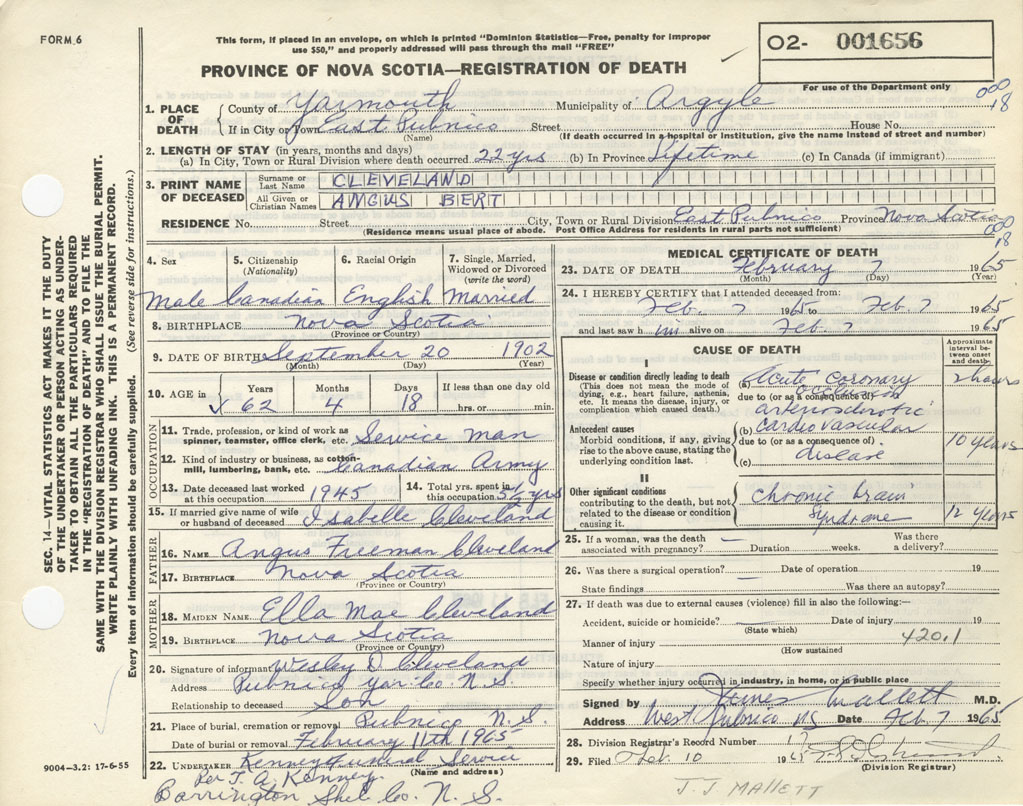 FORM 6
This form, if placed in an envelope, on which is printed "Dominion Statistics—Free, penalty for improper
use $50," and properly addressed will pass through the mail "FREE"
O2- 001656
For use of the Department only
PROVINCE OF NOVA SCOTIA—REGISTRATION OF DEATH
000
18
1. PLACE OF DEATH
County of Yarmouth Municipality of Argyle
If in City or Town East Pubnico Street House No.
(Name) (If death occurred in a hospital or institution, give the name instead of street and number)
2. LENGTH OF STAY (in years, months and days)
(a) In City, Town or Rural Division where death occurred 22 yrs (b) In Province Lifetime (c) In Canada (if immigrant)
3. PRINT NAME OF DECEASED
Surname or Last Name CLEVELAND
All Given or Christian Names ANGUS BERT
RESIDENCE No. Street City, Town or Rural Division East Pubnico Province Nova Scotia
(Residence means usual place of abode. Post Office Address for residents in rural parts not sufficient)
000
18
4. Sex 5. Citizenship (Nationality) 6. Racial Origin 7. Single, Married, Widowed or Divorced (write the word)
Male Canadian English Married
8. BIRTHPLACE Nova Scotia
(Province or Country)
9. DATE OF BIRTH September 20 1902
(Month) (Day) (Year)
10. AGE in Years Months Days If less than one day old
62 4 18 hrs. or min.
OCCUPATION
11. Trade, profession, or kind of work as
spinner, teamster, office clerk, etc. Service man
12. Kind of industry or business, as cotton-
mill, lumbering, bank, etc. Canadian Army
13. Date deceased last worked at this occupation 1945 14. Total yrs. spent in this occupation 5½ yrs
15. If married give name of wife
or husband of deceased Isabelle Cleveland
FATHER
16. NAME Angus Freeman Cleveland
17. BIRTHPLACE Nova Scotia
(Province or Country)
MOTHER
18. MAIDEN NAME Ella Mae Cleveland
19. BIRTHPLACE Nova Scotia
(Province or Country)
20. Signature of informant Wesley D Cleveland
Address Pubnico Yar. Co. N.S.
Relationship to deceased Son
21. Place of burial, cremation or removal Pubnico N.S.
Date of burial or removal February 11th 1965
22. UNDERTAKER Kenney Funeral Service
(Name and address)
Per J. A. Kenney
Barrington Shel. Co. N.S.
9004—3.2: 17-6-55
MEDICAL CERTIFICATE OF DEATH
23. DATE OF DEATH February 7 1965
(Month) (Day) (Year)
24. I HEREBY CERTIFY that I attended deceased from:
Feb. 7 1965 to Feb. 7 1965
and last saw him alive on Feb. 7 1965
CAUSE OF DEATH
Approximate interval between onset and death
I
Disease or condition directly leading to death
(This does not mean the mode of
dying, e.g., heart failure, asthenia,
etc. It means the disease, injury, or
complication which caused death.)
(a) Acute coronary 2 hours
occlusion
due to (or as a consequence of)
arteriosclerotic
Antecedent causes
Morbid conditions, if any, giving
rise to the above cause, stating the
underlying condition last.
(b) cardiovascular 10 years
due to (or as a consequence of)
disease
(c)
II
Other significant conditions
contributing to the death, but not
related to the disease or condition
causing it.
chronic brain
syndrome 12 years
25. If a woman, was the death
associated with pregnancy? Duration weeks. Was there a delivery?
26. Was there a surgical operation? Date of operation 19
State findings Was there an autopsy?
27. If death was due to external causes (violence) fill in also the following:—
Accident, suicide or homicide? Date of injury 19
(State which)
Manner of injury 420.1
(How sustained)
Nature of injury
Specify whether injury occurred in industry, in home, or in public place
Signed by James Mallett M.D.
Address West Pubnico NS Date Feb. 7 1965
28. Division Registrar's Record Number
29. Filed Feb. 10 196
(Division Registrar)
J. J MALLETT
SEC. 14—VITAL STATISTICS ACT MAKES IT THE DUTY
OF THE UNDERTAKER OR PERSON ACTING AS UNDER-
TAKER TO OBTAIN ALL THE PARTICULARS REQUIRED
IN THE "REGISTRATION OF DEATH" AND TO FILE THE
SAME WITH THE DIVISION REGISTRAR WHO SHALL ISSUE THE BURIAL PERMIT.
WRITE PLAINLY WITH UNFADING INK. THIS IS A PERMANENT RECORD.
Every item of information should be carefully supplied. (See reverse side for instructions.)